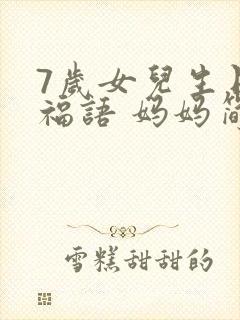 7歲女兒生
福語 妈妈
雪糕甜甜的